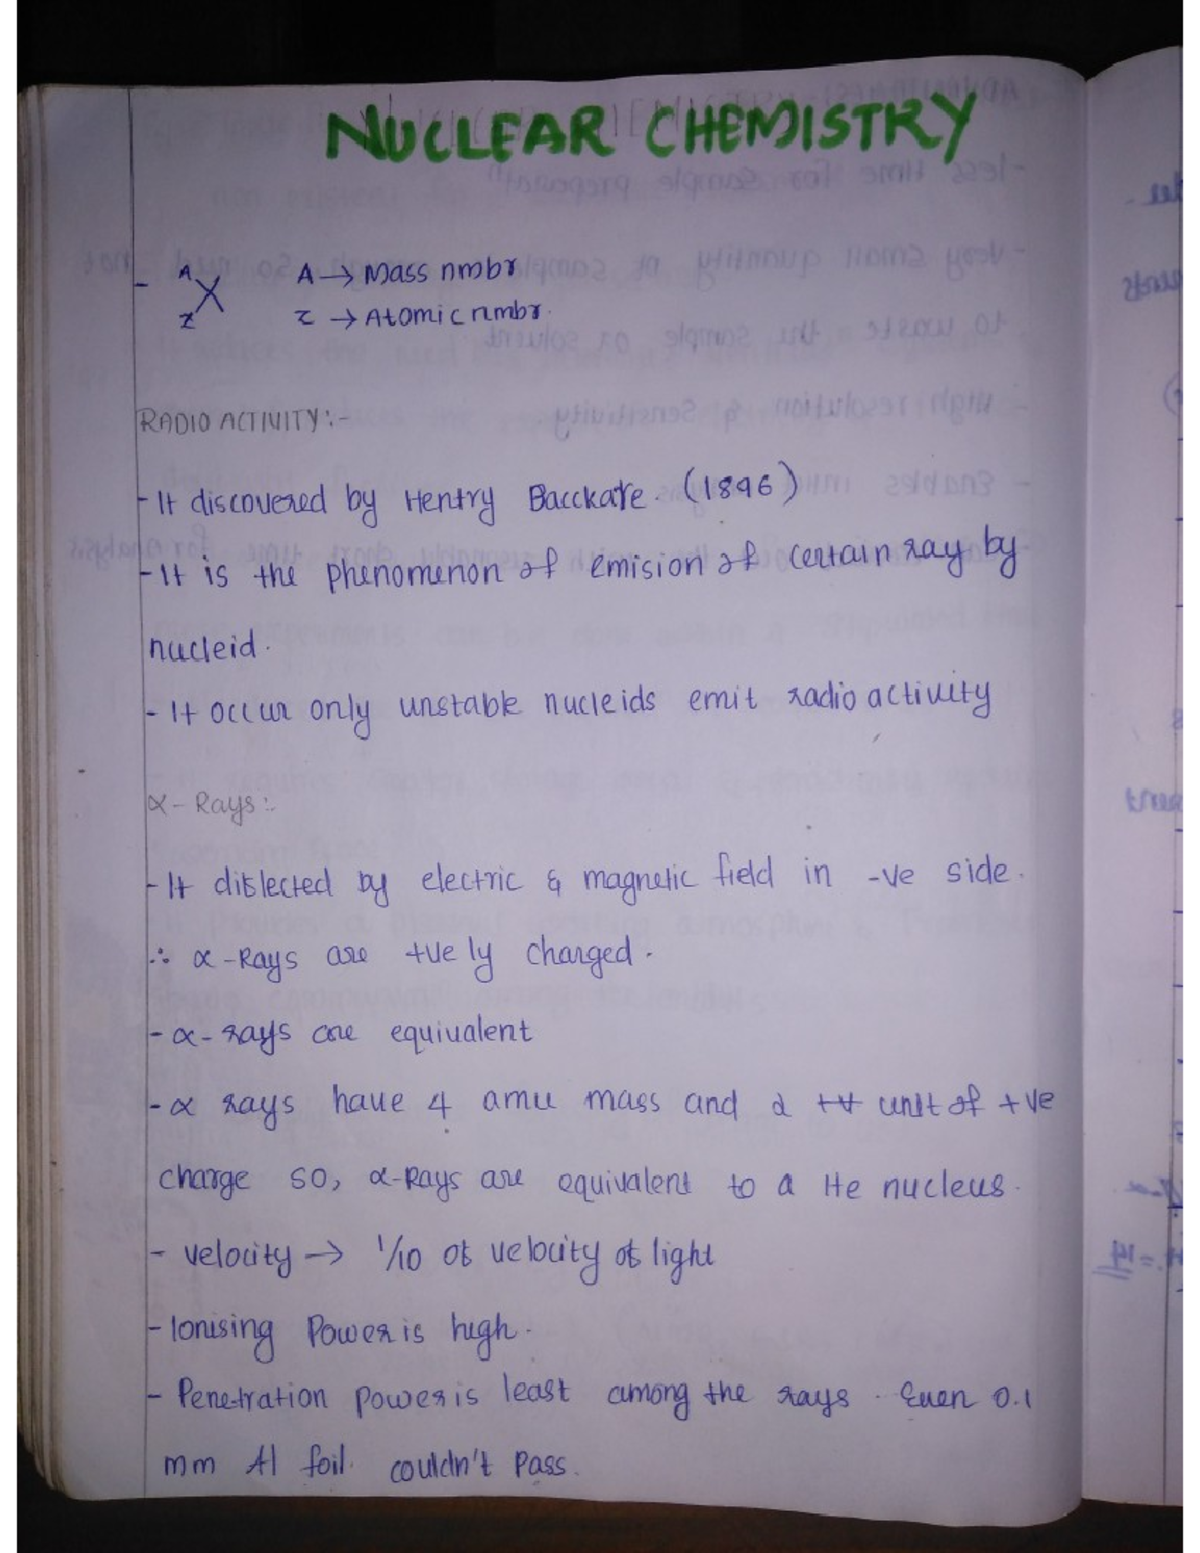 NUCLEAR CHEMISTRY
- A X Z A → Mass nmbr
Z → Atomic nmbr.
RADIO ACTIVITY:-
- It discovered by Hentry Bacckare. (1896)
- It is the phenomenon of emision of certain ray by
nucleid.
- It occur only unstable nucleids emit radio activity
α- Rays:-
- It diflected by electric & magnetic field in -ve side.
∴ α-Rays are +vely charged.
- α- rays are equivalent
- α rays have 4 amu mass and 2 unit of +ve
charge so, α-Rays are equivalent to a He nucleus.
- velocity → 1/10 of velocity of light
- Ionising Power is high.
- Penetration power is least among the rays. Even 0.1
mm Al foil. couldn't pass.